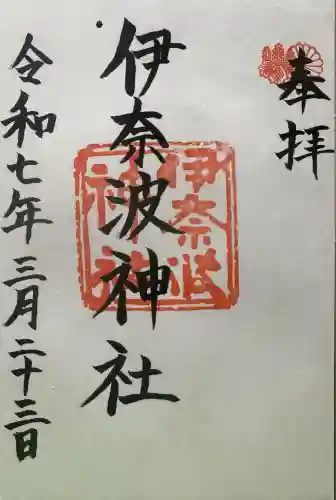 奉拝
伊奈波神社
令和七年三月二十三日
伊奈波
神社